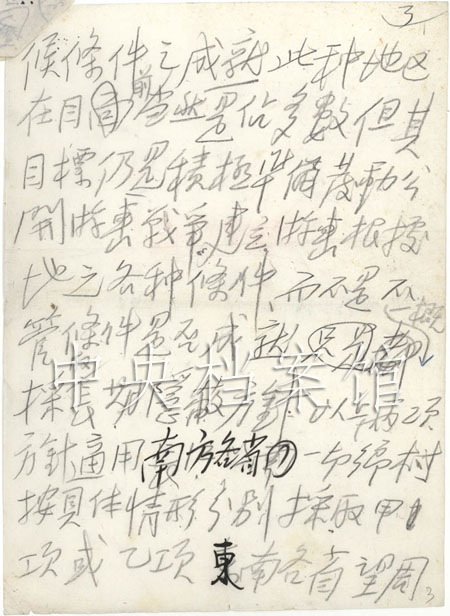 3
候條件之成就,此种地区
在目前当然是佔多數但其
目標仍是積極準備發動公
開游击戰爭建立游击根據
地之各种條件,而不是不
管條件是否成就,一概
採長期隱蔽方針.兩項
方針適用南方各省的一切鄉村
按具体情形分别採取甲
項或乙項 東南各省望周
3
中央档案馆